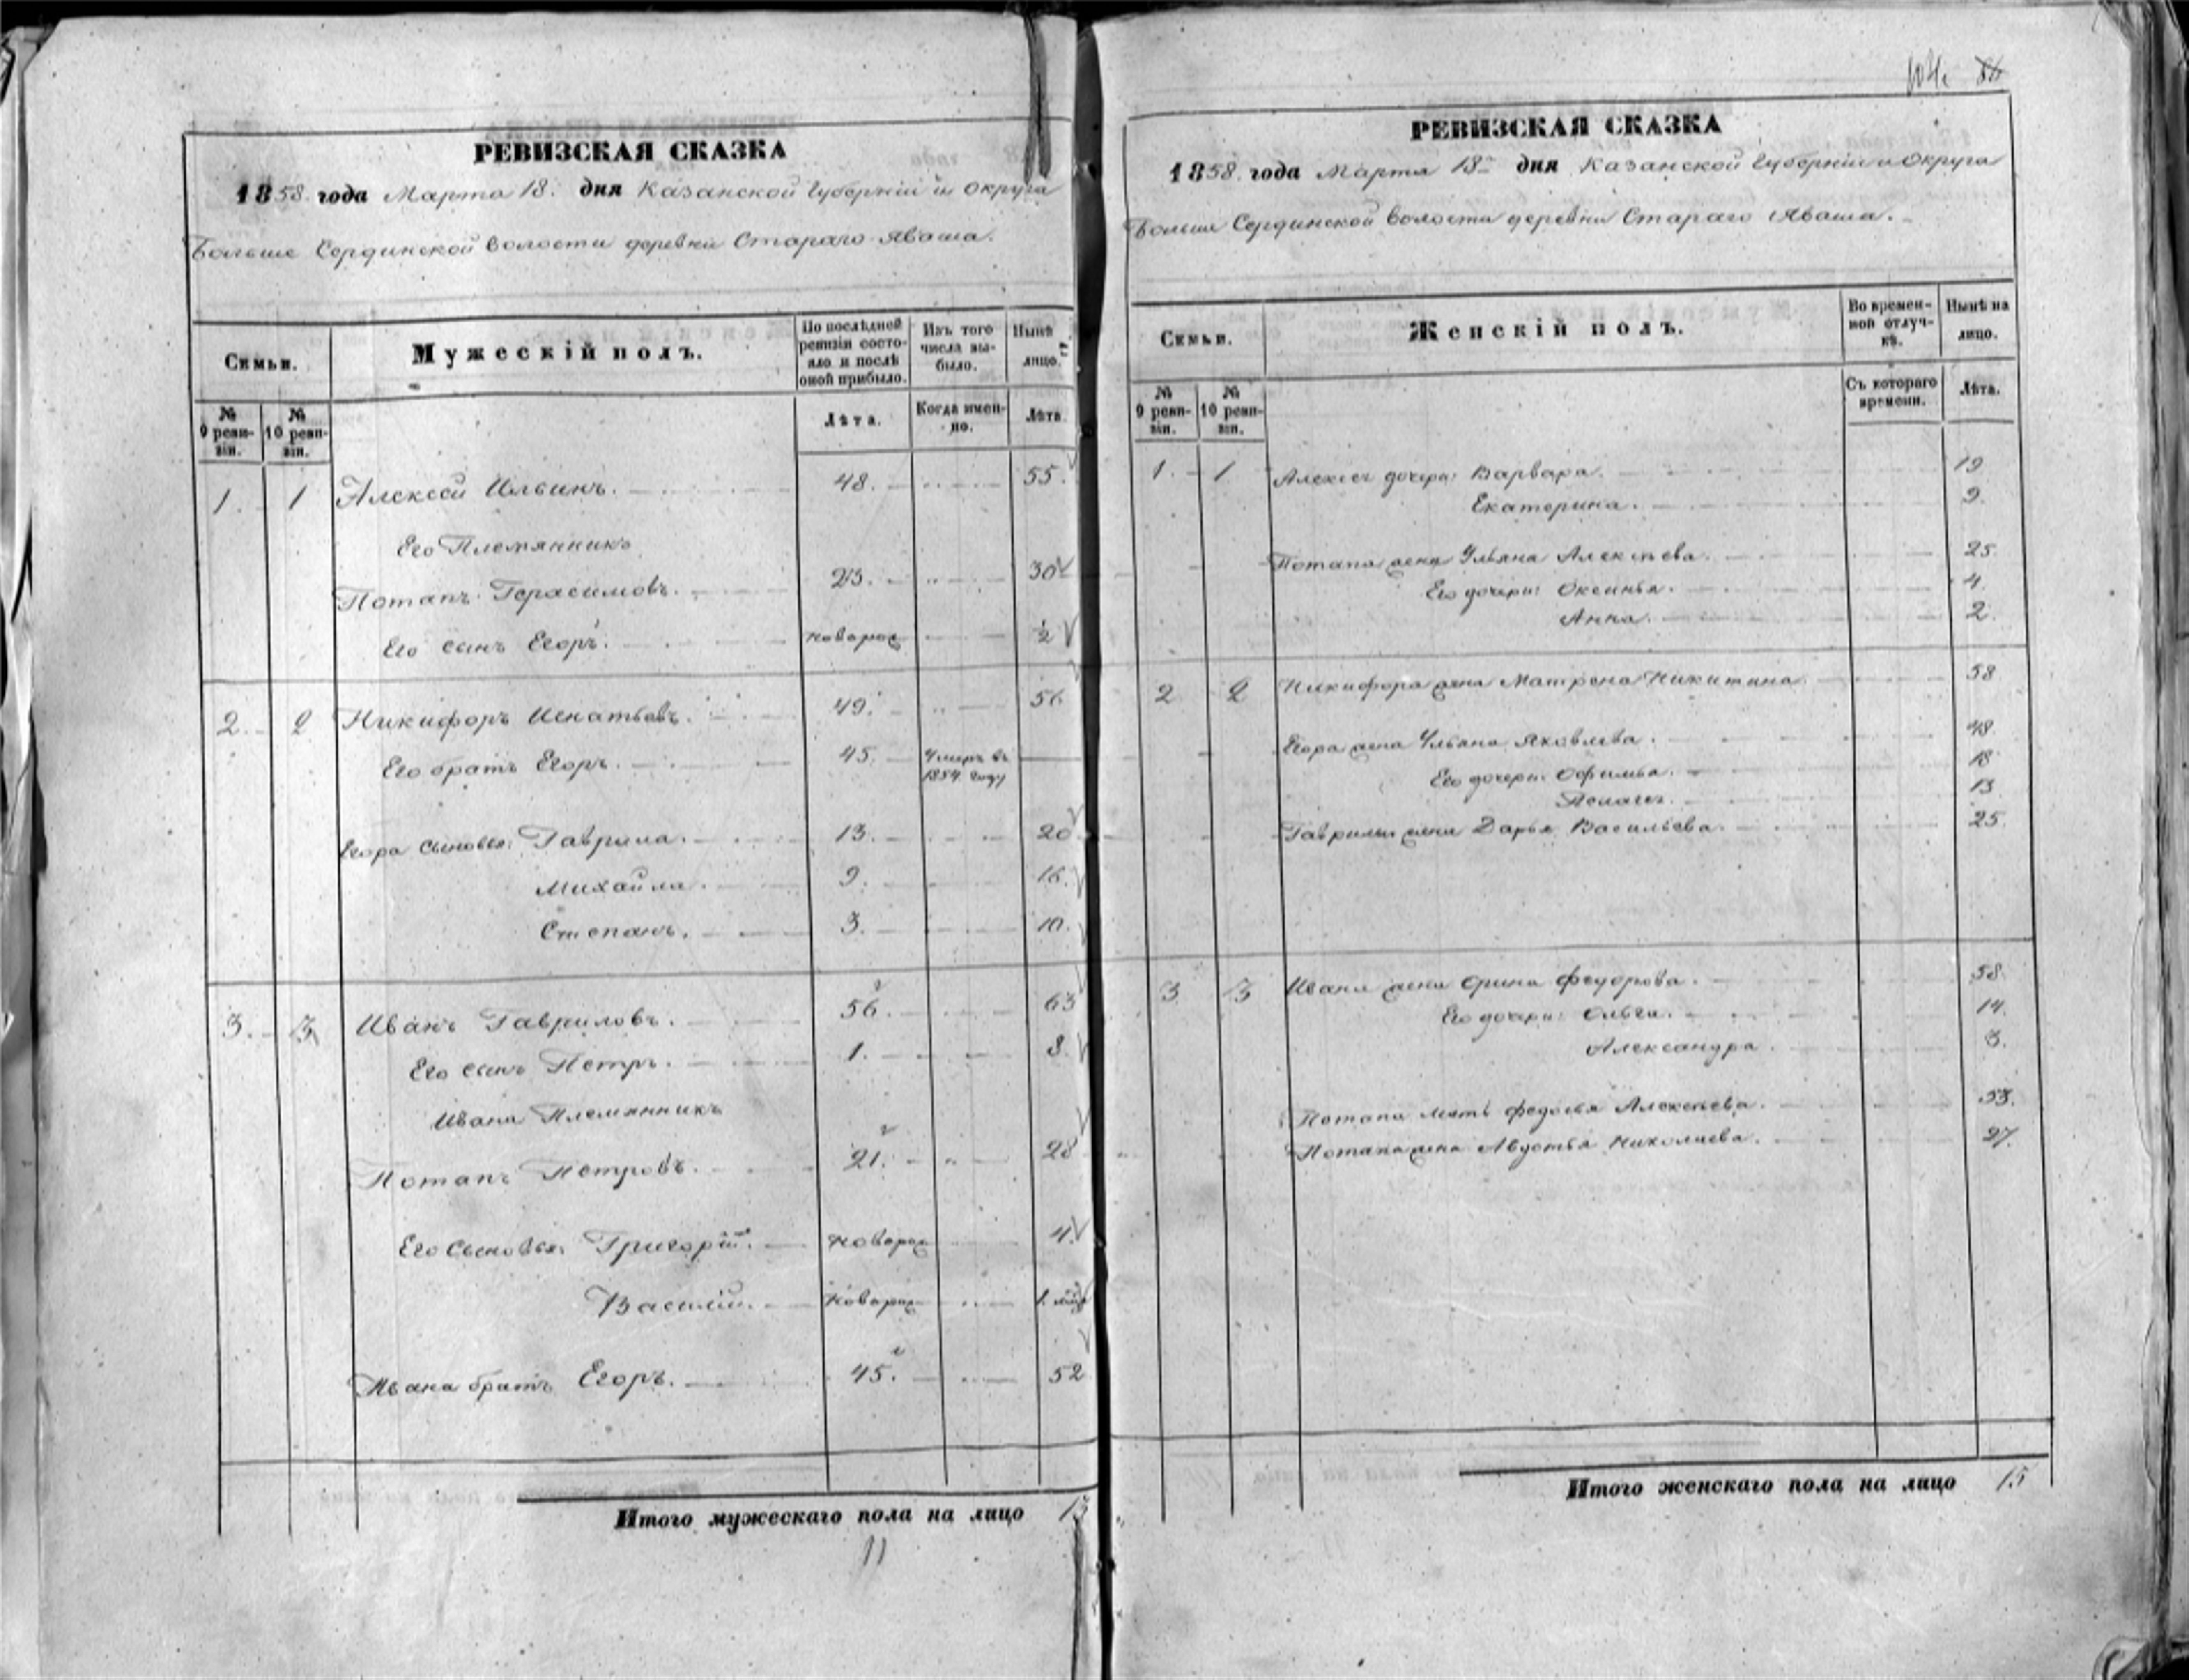 РЕВИЗСКАЯ СКАЗКА
1858. года Марта 18. дня Казанской Губерніи и округа
Больше Сердинской волости деревни Стараго Яваша.
Семьи.
Мужескій полъ.
По послѣдней ревизіи состояло и послѣ оной прибыло.
Изъ того числа выбыло.
Нынѣ на лицо.
№ 9 ревизіи.
№ 10 ревизіи.
Лѣта.
Когда именно.
Лѣта.
1. 1 Алексей Ильинъ. 48. 55.
Его Племянникъ
Потапъ Герасимовъ. 23. 30
Его сынъ Егоръ. новорож ½
2. 2 Никифоръ Игнатьевъ. 49. 56
Его братъ Егоръ. 45. Умеръ въ 1854 году
Егора сыновья: Гаврила. 13. 20
Михайла. 9. 16.
Степанъ. 3. 10.
3. 3 Иванъ Гавриловъ. 56. 63
Его сынъ Петръ. 1. 8.
Ивана Племянникъ
Потапъ Петровъ. 21. 28
Его сыновья: Григорій. новорож 4.
Василій. новорож 1.
Ивана братъ Егоръ. 45. 52
Итого мужескаго пола на лицо 13
11
104. 86
РЕВИЗСКАЯ СКАЗКА
1858. года Марта 18 дня Казанской Губерніи и округа
Больше Сердинской волости деревни Стараго Яваша.
Семьи.
Женскій полъ.
Во временной отлучкѣ.
Нынѣ на лицо.
№ 9 ревизіи.
№ 10 ревизіи.
Съ котораго времени.
Лѣта.
1. 1 Алексея дочери: Варвара. 19
Екатерина. 9.
Потапа жена Ульяна Алексѣева. 25
Его дочери: Оксинья. 4.
Анна. 2.
2 2 Никифора жена Матрена Никитина. 58
Егора жена Ульяна Яковлева. 48
Его дочери: Офимья. 18
Пелагея. 13
Гаврилы жена Дарья Васильева. 25.
3 3 Ивана жена Орина Федорова. 58.
Его дочери: Ольга. 14.
Александра. 3.
Потапа мать Федосья Алексѣева. 53.
Потапа жена Авдотья Николаева. 27.
Итого женскаго пола на лицо 15